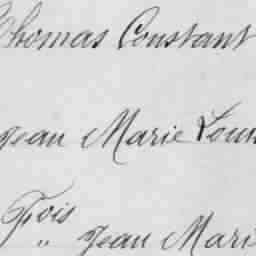 Thomas Constant
Jean Marie Loui
Fois
" Jean Mari